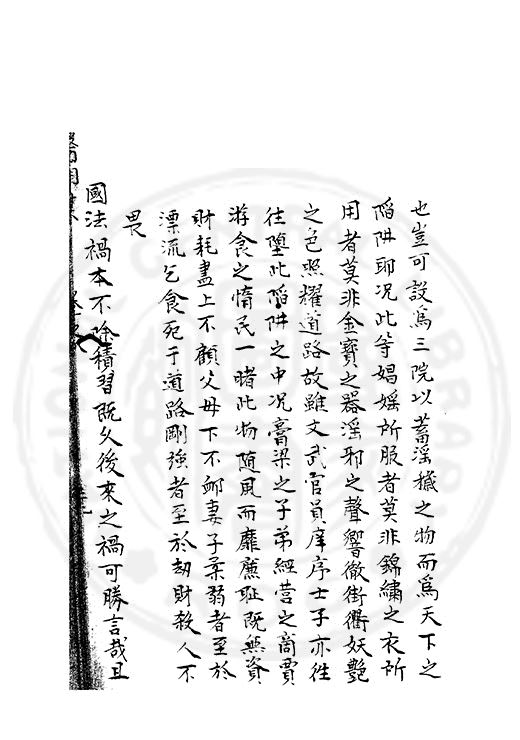 也豈可設爲三院以蓄淫穢之物而爲天下之
陷阱耶况此等娼婬所服者莫非錦繡之衣所
用者莫非金寶之器淫邪之聲響徹街衢妖艷
之色照耀道路故雖文武官員庠序士子亦徃
徃墮此陷阱之中况膏梁之子弟經营之商賈
游食之惰民一睹此物随風而靡廉耻既無資
財耗盡上不顧父母下不衈妻子柔弱者至於
漂流乞食死于道路剛強者至於刼財殺人不
畏
國法禍本不除積習既久後來之禍可勝言哉且